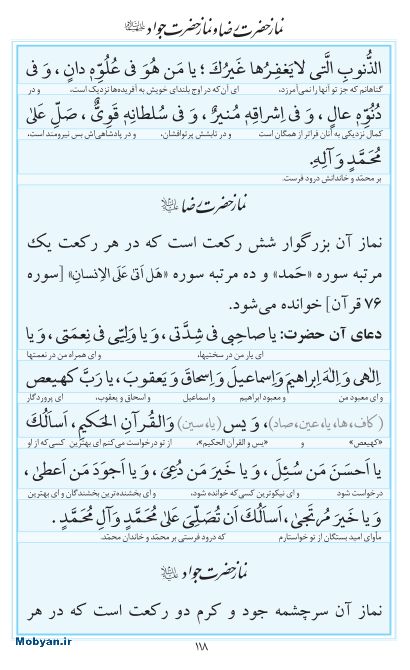 نماز حضرت رضا و نماز حضرت جواد علیهماالسلام
الذُّنُوبِ الَّتی لایَغفِرُها غَیرُکَ ؛ یا مَن هُوَ فی عُلُوِّهٖ دانٍ ، وَ فی
گناهانم که جز تو آنها را نمی‌آمرزد، ای آن‌که در اوج بلندای خویش به آفریده‌ها نزدیک است، و در
دُنُوِّهٖ عالٍ ، وَ فی اِشراقِهٖ مُنیرٌ ، وَ فی سُلطانِهٖ قَویٌّ ، صَلِّ عَلیٰ
کمال نزدیکی به آنان فراتر از همگان است و در تابشش پرتوافشان، و در پادشاهی‌اش بس نیرومند است،
مُحَمَّدٍ وَ آلِهٖ.
بر محمّد و خاندانش درود فرست.
نماز حضرت رضا علیه‌السلام
نماز آن بزرگوار شش رکعت است که در هر رکعت یک
مرتبه سوره «حَمد» و ده مرتبه سوره «هَل اَتیٰ عَلَی الاِنسانِ» [سوره
۷۶ قرآن] خوانده می‌شود.
دعای آن حضرت: یا صاحِبی فی شِدَّتی ، وَ یا وَلِیّی فی نِعمَتی ، وَ یا
ای یار من در سختیها، و ای همراه من در نعمتها
اِلٰهی وَ اِلٰهَ اِبراهیمَ وَ اِسماعیلَ وَ اِسحاقَ وَ یَعقوبَ ، یا رَبَّ کهیعص
و ای معبود من و معبود ابراهیم و اسماعیل و اسحاق و یعقوب، ای پروردگار
(کاف، ها، یا، عین، صاد) ، وَ یس (یا،سین) وَالقُرآنِ الحَکیمِ ، اَسأَلُکَ
«کهیعص» و «یس و القرآن الحکیم»، از تو درخواست می‌کنم ای بهترین کسی‌که از او
یا اَحسَنَ مَن سُئِلَ ، وَ یا خَیرَ مَن دُعِیَ ، وَ یا اَجوَدَ مَن اَعطیٰ ،
درخواست شود و ای نیکوترین کسی‌که خوانده شود، و ای بخشنده‌ترین بخشندگان و ای بهترین
وَ یا خَیرَ مُرتَجیٰ ، اَسأَلُکَ اَن تُصَلِّیَ عَلیٰ مُحَمَّدٍ وَ آلِ مُحَمَّدٍ .
مأوای امید بستگان از تو خواستارم که درود فرستی بر محمّد و خاندان محمّد.
نماز حضرت جواد علیه‌السلام
نماز آن سرچشمه جود و کرم دو رکعت است که در هر
۱۱۸
Mobyan.ir